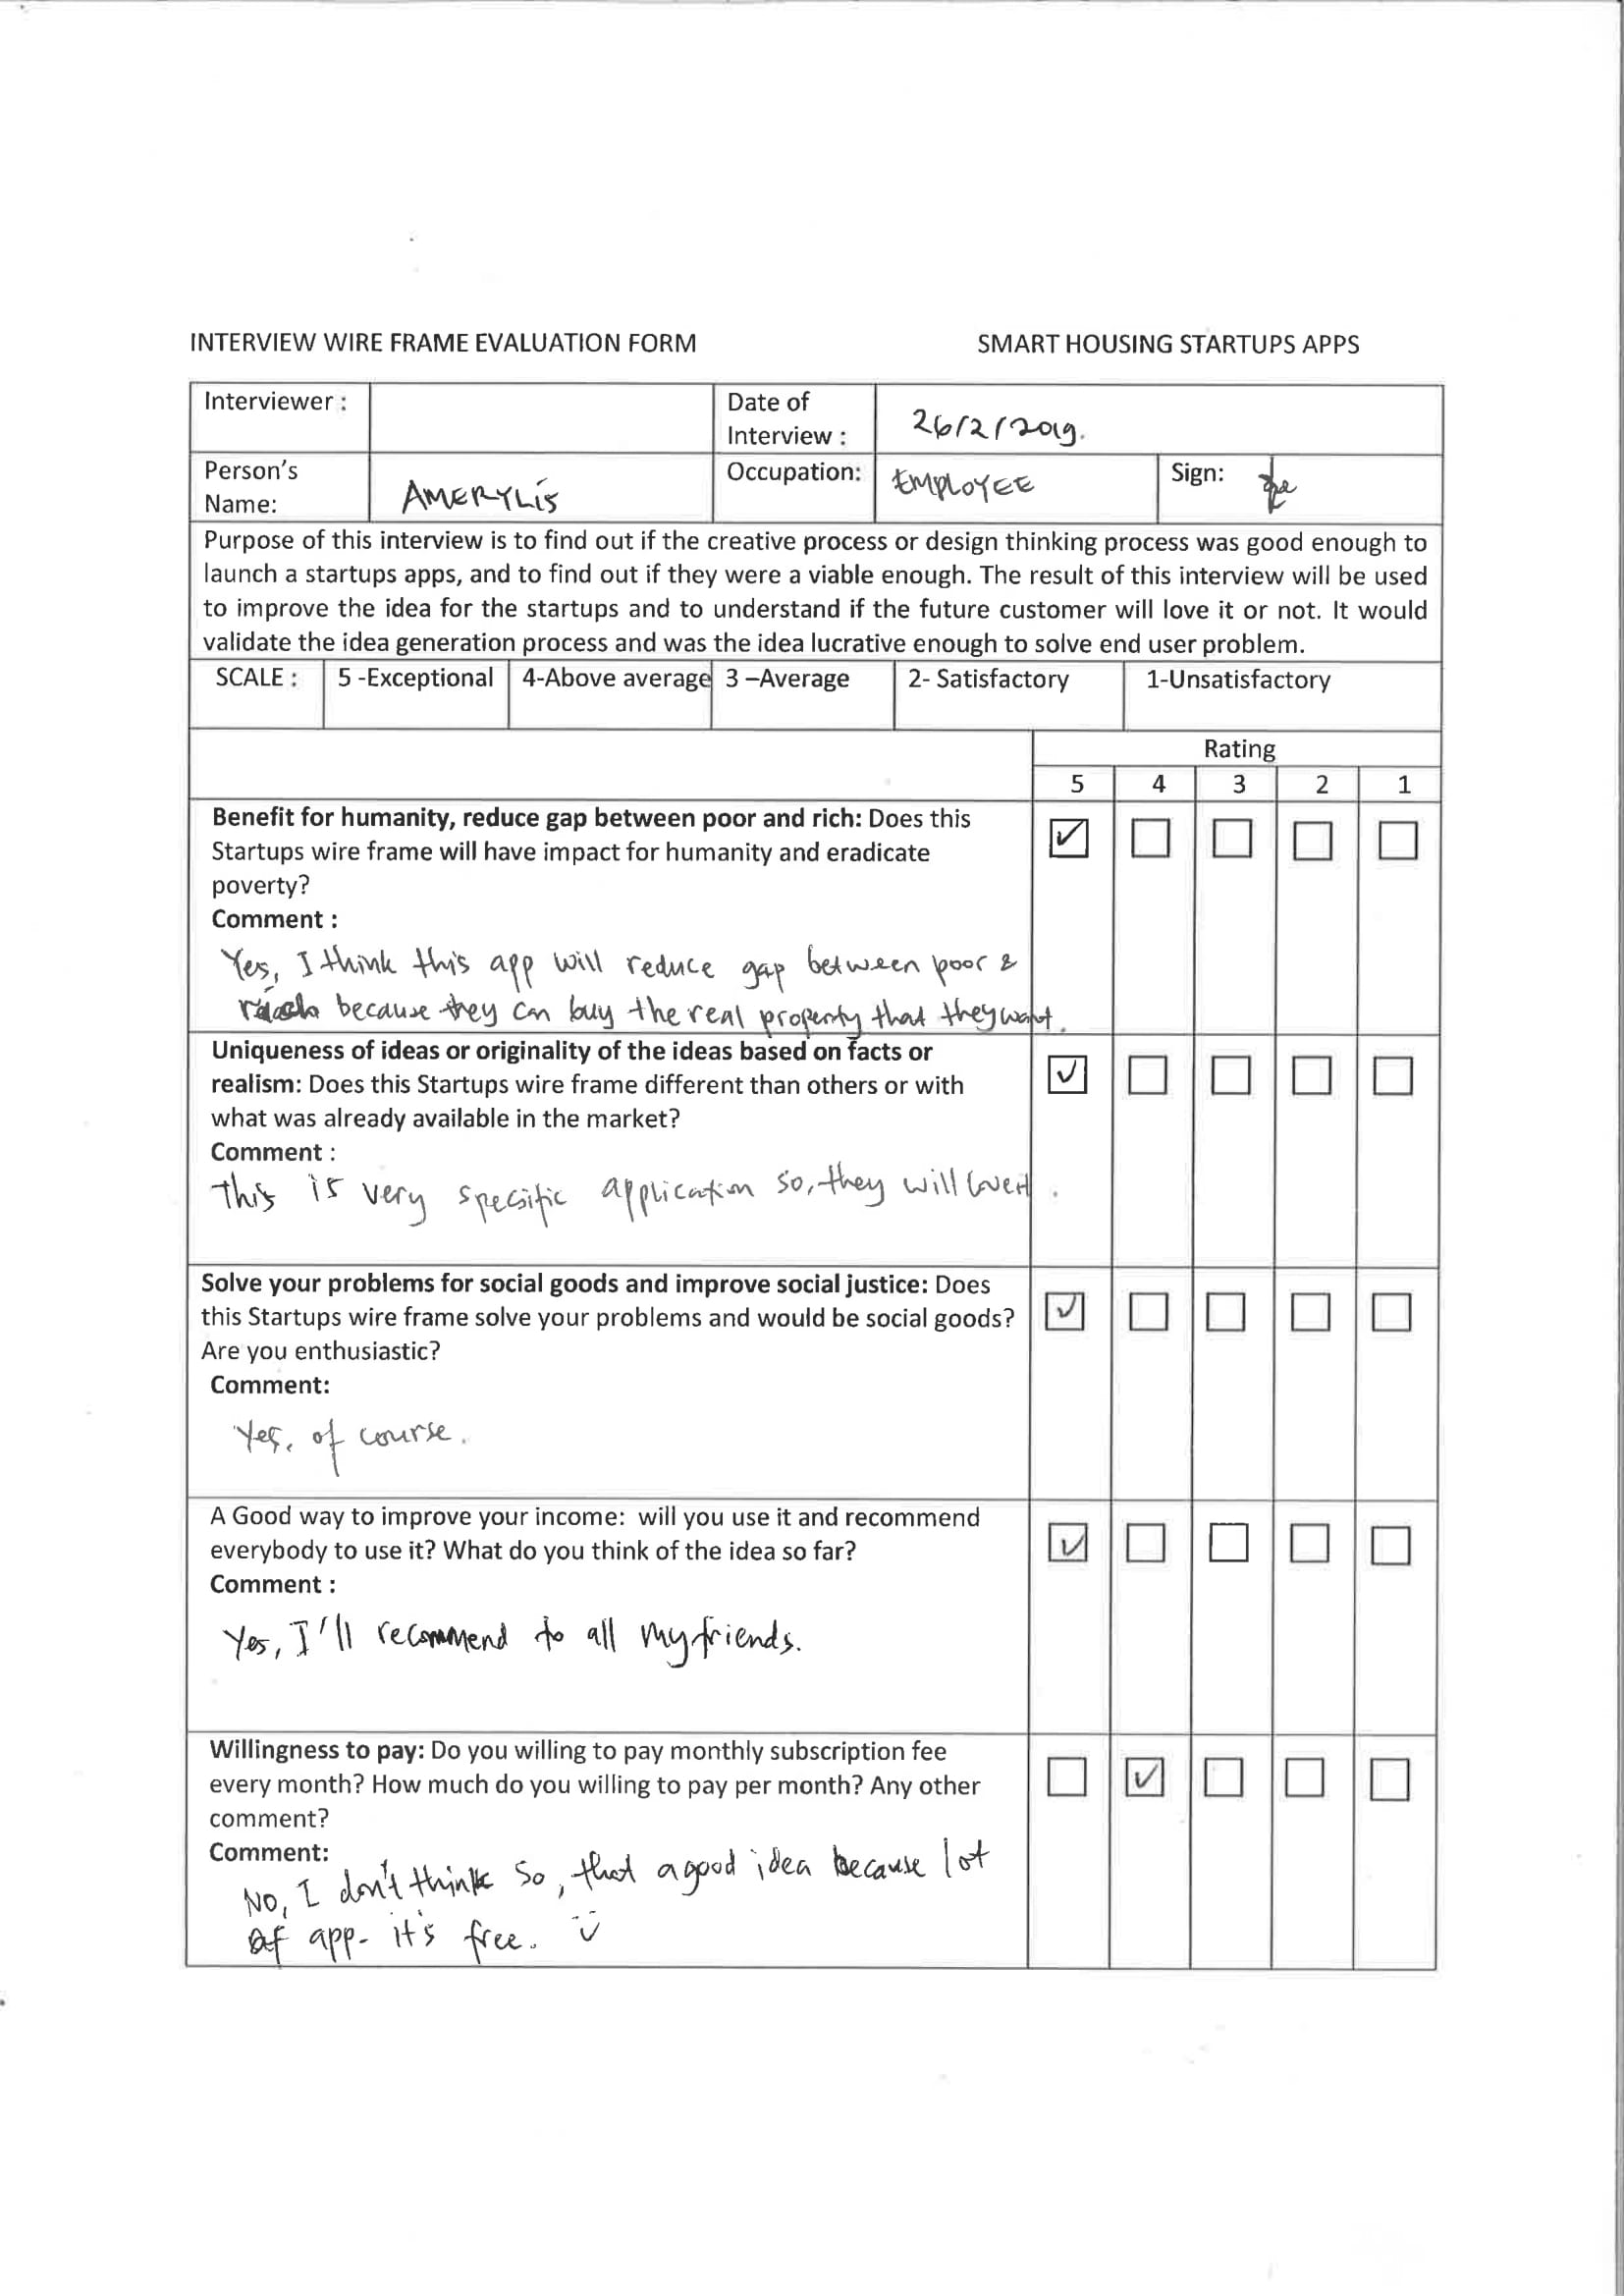 INTERVIEW WIRE FRAME EVALUATION FORM SMART HOUSING STARTUPS APPS
Interviewer : Date of
Interview : 26/2/2019.
Person's
Name: AMERYLIS Occupation: EMPLOYEE Sign:
Purpose of this interview is to find out if the creative process or design thinking process was good enough to
launch a startups apps, and to find out if they were a viable enough. The result of this interview will be used
to improve the idea for the startups and to understand if the future customer will love it or not. It would
validate the idea generation process and was the idea lucrative enough to solve end user problem.
SCALE : 5 -Exceptional 4-Above average 3 –Average 2- Satisfactory 1-Unsatisfactory
Rating
5 4 3 2 1
Benefit for humanity, reduce gap between poor and rich: Does this
Startups wire frame will have impact for humanity and eradicate
poverty?
Comment :
Yes, I think this app will reduce gap between poor &
because they can buy the real property that they want.
Uniqueness of ideas or originality of the ideas based on facts or
realism: Does this Startups wire frame different than others or with
what was already available in the market?
Comment :
This is very spesific application so, they will love it.
Solve your problems for social goods and improve social justice: Does
this Startups wire frame solve your problems and would be social goods?
Are you enthusiastic?
Comment:
Yes, of course.
A Good way to improve your income: will you use it and recommend
everybody to use it? What do you think of the idea so far?
Comment :
Yes, I'll recommend to all my friends.
Willingness to pay: Do you willing to pay monthly subscription fee
every month? How much do you willing to pay per month? Any other
comment?
Comment:
No, I don't think so, that a good idea because lot
of app- it's free.